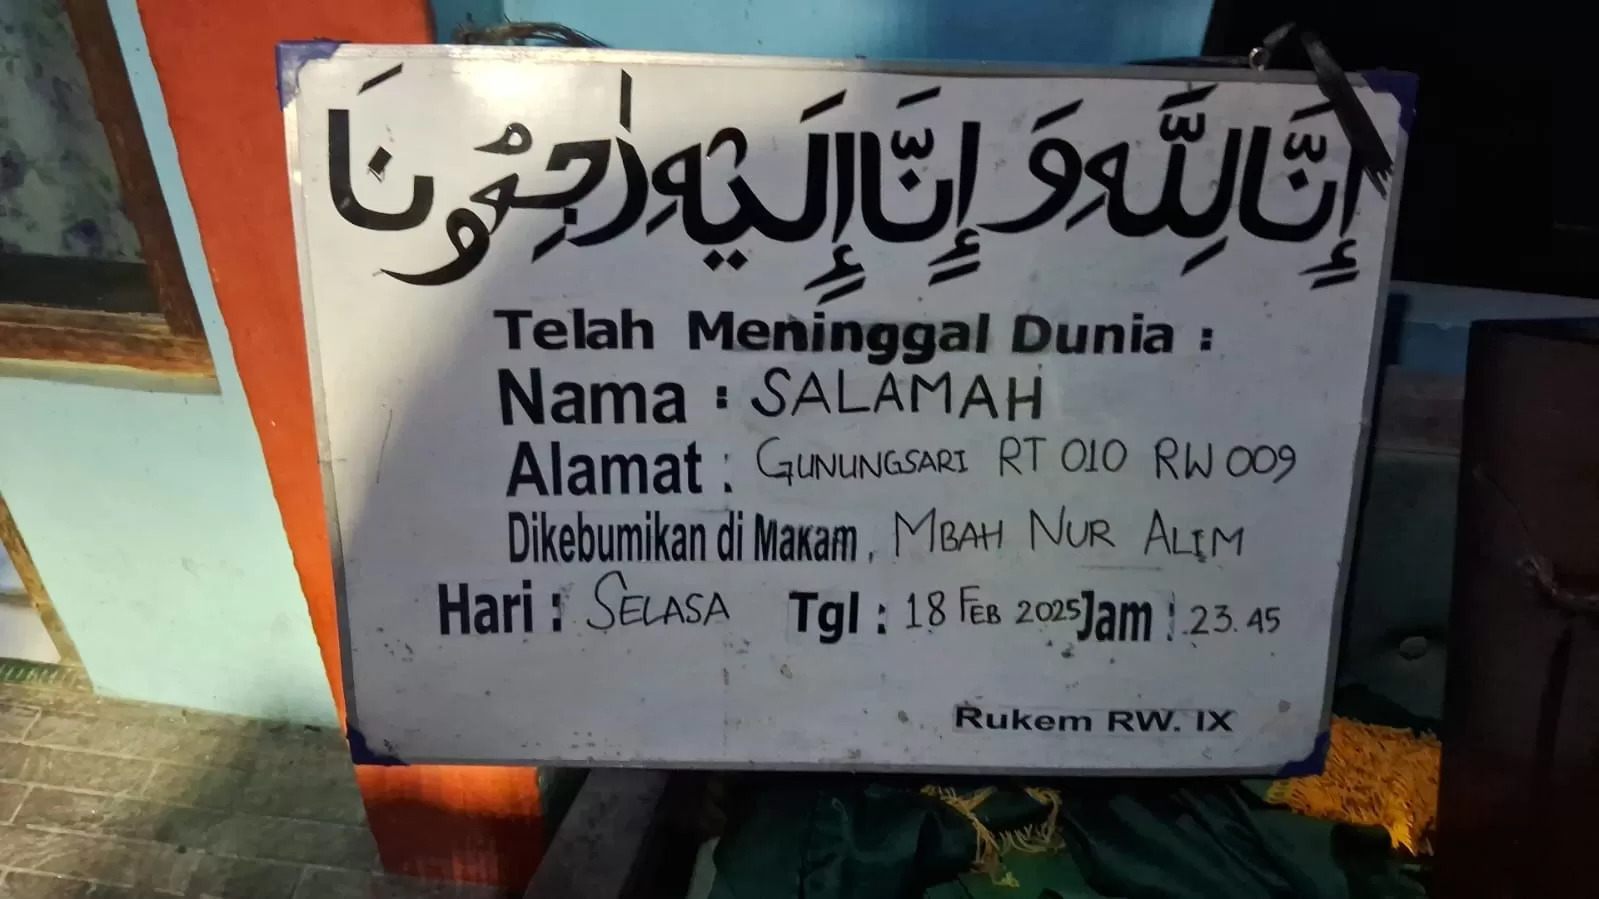 إِنَّا لِلَّهِ وَ إِنَّا إِلَيْهِ رَاجِعُونَ
Telah Meninggal Dunia :
Nama : SALAMAH
Alamat : GUNUNGSARI RT 010 RW 009
Dikebumikan di Makam, MBAH NUR ALIM
Hari : SELASA Tgl : 18 FEB 2025 Jam : 23.45
Rukem RW. IX